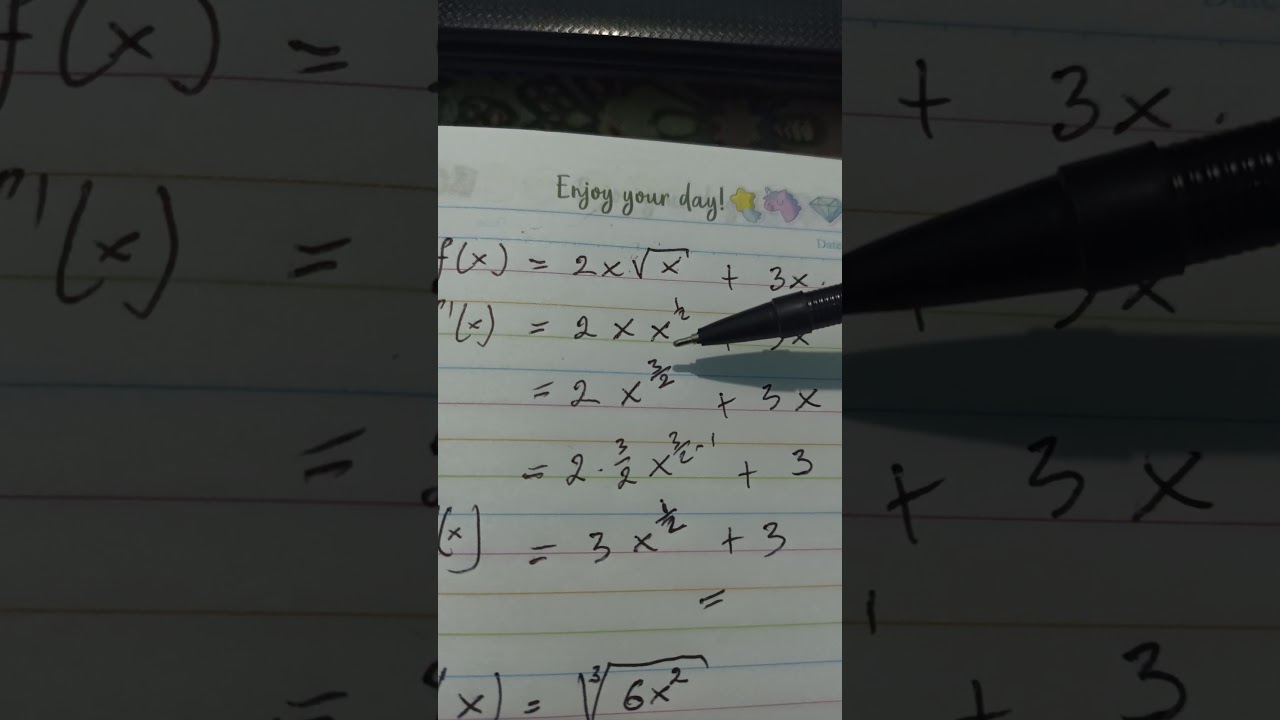 Enjoy your day!
Date
f(x) = 2x√x + 3x.
"'(x) = 2 x x^½ + 3x
= 2 x^3/2 + 3x
= 2 · 3/2 x^3/2-1 + 3
(x) = 3 x^½ + 3
=
x) = ∛6x²